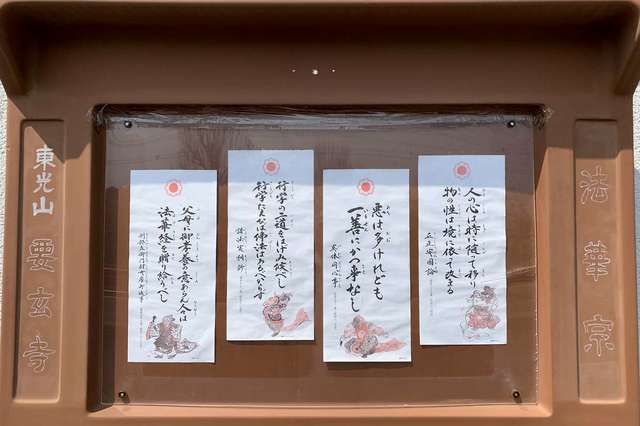 法華宗
人の心は時に随て移り
物の性は境に依て改まる
立正安国論
悪は多けれども
一善にかつ事なし
異体同心事
行学の二道をはげみ候べし
行学たえなば佛法はあるべからず
諸法実相鈔
父母に御孝養の意あらん人々は
法華経を贈り給うべし
刑部左衛門尉女房御返事
東光山
要玄寺